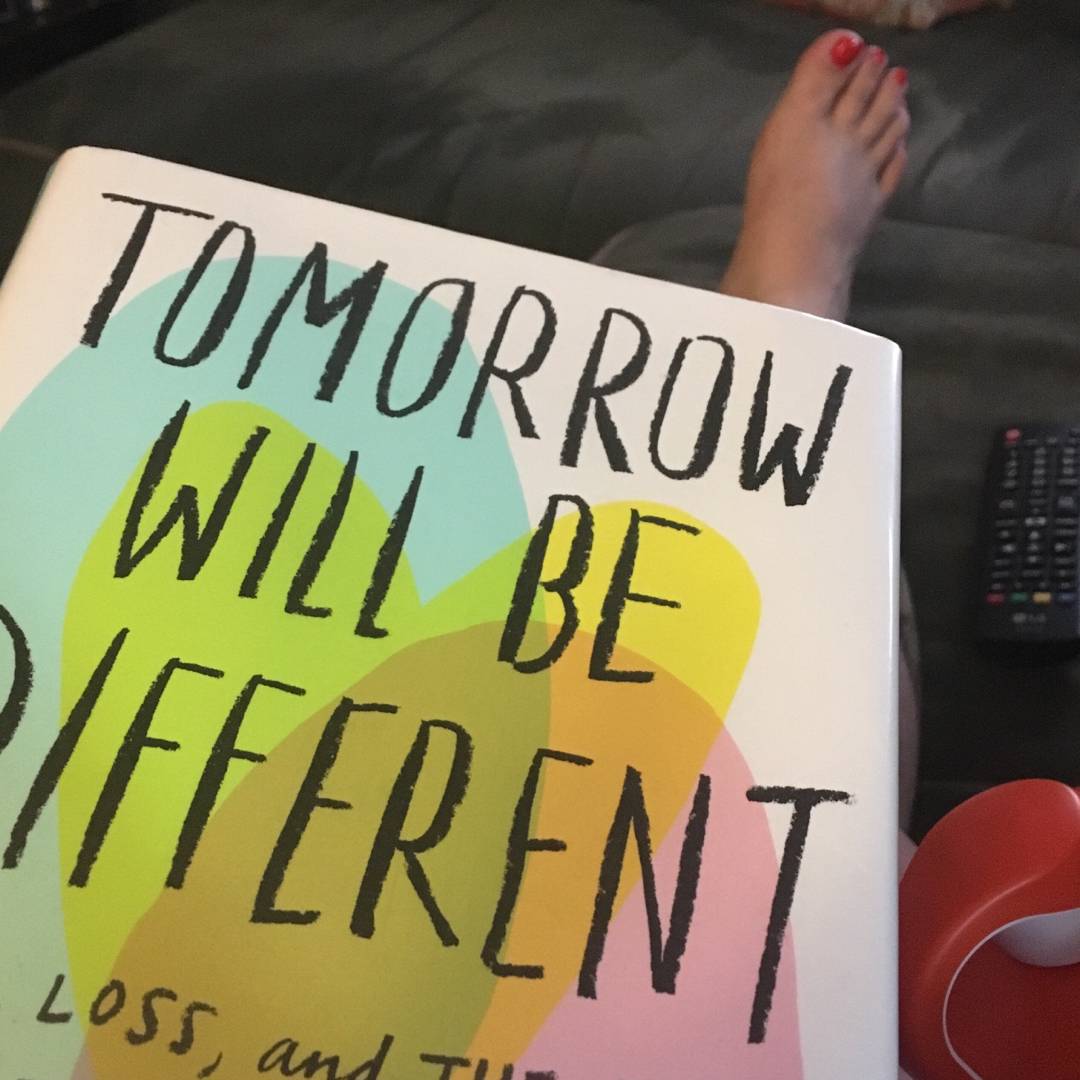 TOMORROW
WILL BE
DIFFERENT
LOSS, and THE